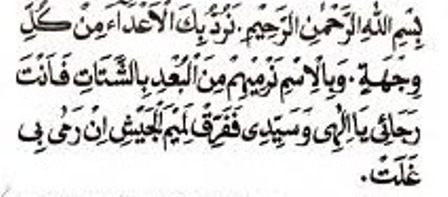 بِسْمِ اللهِ الرَّحْمٰنِ الرَّحِيْمِ. نَرُدُّ بِكَ الْاَعْدَآءَ مِنْ كُلِّ
وِجْهَةٍ. وَبِالْاِسْمِ نَرْمِيْهِمْ مِنَ الْبُعْدِ بِالشَّتَاتِ فَاَنْتَ
رَجَائِيْ يَا اِلٰهِىْ وَسَيِّدِىْ فَفَرِّقْ لَمِيْمَ الْجَيْشِ اِنْ رَمٰى بِىْ
غَلَتْ.